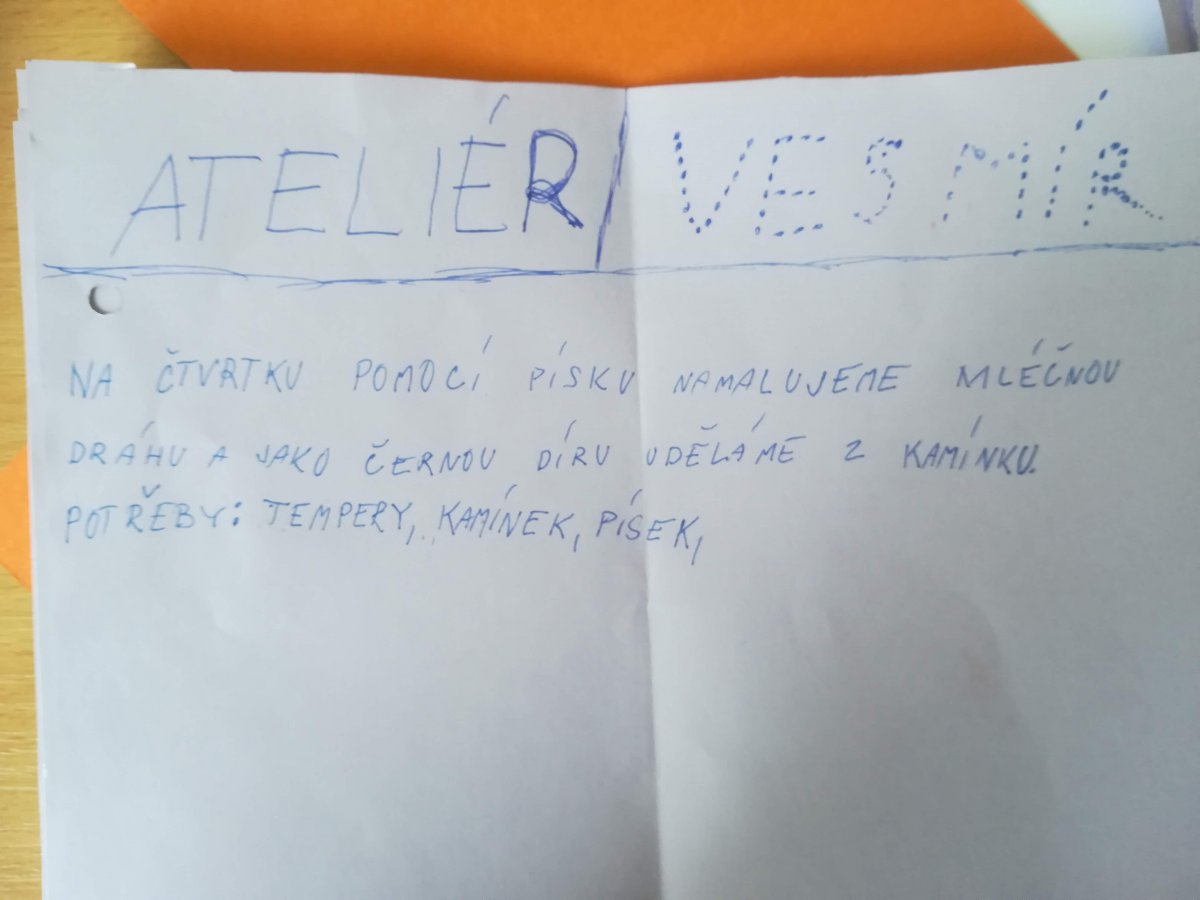 ATELIÉR / VESMÍR
NA ČTVRTKU POMOCÍ PÍSKU NAMALUJEME MLÉČNOU
DRÁHU A JAKO ČERNOU DÍRU UDĚLÁME Z KAMÍNKU.
POTŘEBY: TEMPERY, KAMÍNEK, PÍSEK,